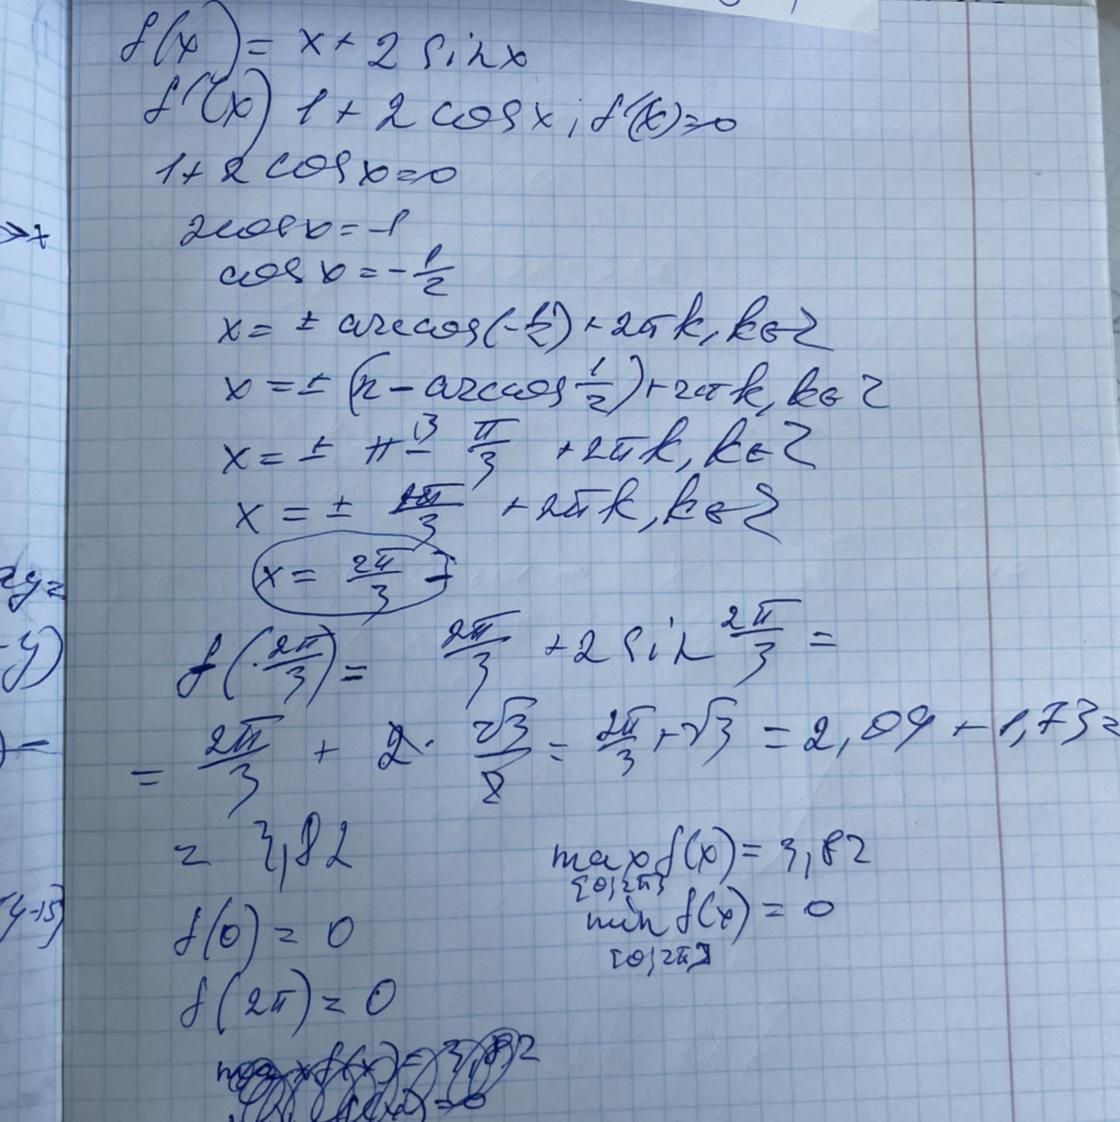 f(x) = x + 2 sin x
f'(x) 1 + 2 cos x ; f'(x) = 0
1 + 2 cos x = 0
2cos x = -1
cos x = -1/2
x = ± arccos(-1/2) + 2πk, k∈Z
x = ± (π - arccos 1/2) + 2πk, k∈Z
x = ± π - π/3 + 2πk, k∈Z
x = ± 2π/3 + 2πk, k∈Z
x = 2π/3
f(2π/3) = 2π/3 + 2 sin 2π/3 =
= 2π/3 + 2 · √3/2 = 2π/3 + √3 = 2,09 + 1,73 =
= 3,82
max f(x) = 3,82
[0;2π]
min f(x) = 0
[0;2π]
f(0) = 0
f(2π) = 0